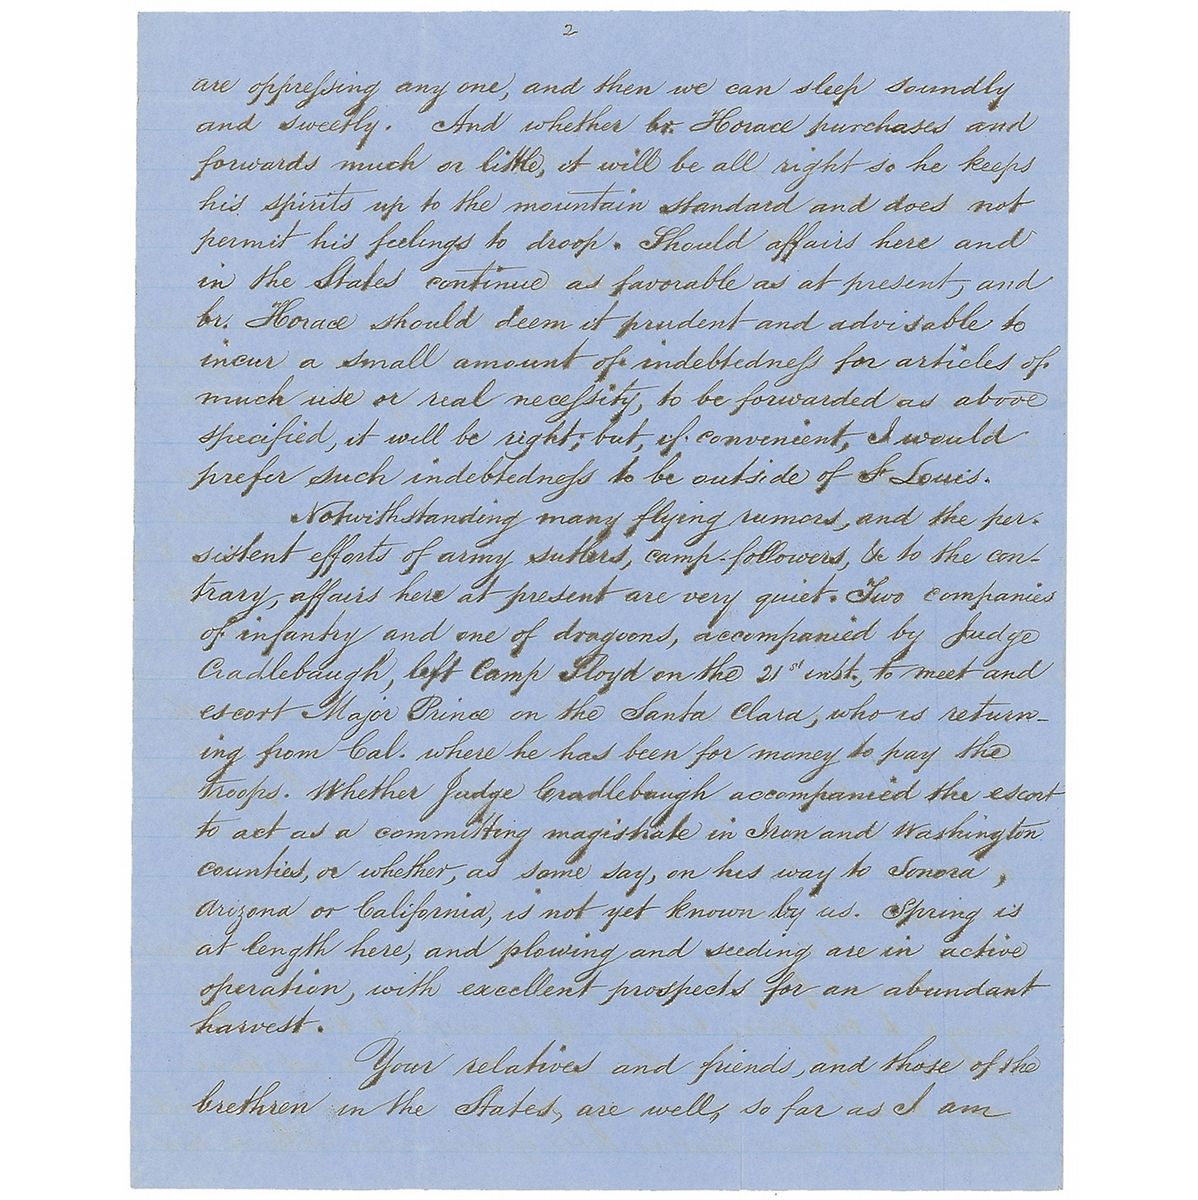 2
are oppressing any one, and then we can sleep soundly
and sweetly. And whether br. Horace purchases and
forwards much or little, it will be all right so he keeps
his spirits up to the mountain standard and does not
permit his feelings to droop. Should affairs here and
in the States continue as favorable as at present, and
br. Horace should deem it prudent and advisable to
incur a small amount of indebtedness for articles of
much use or real necessity, to be forwarded as above
specified, it will be right; but, if convenient, I would
prefer such indebtedness to be outside of St Louis.
Notwithstanding many flying rumors, and the per-
sistent efforts of army sutlers, camp-followers, &c to the con-
trary, affairs here at present are very quiet. Two companies
of infantry and one of dragoons, accompanied by Judge
Cradlebaugh, left Camp Floyd on the 21st inst., to meet and
escort Major Prince on the Santa Clara, who is return-
ing from Cal. where he has been for money to pay the
troops. Whether Judge Cradlebaugh accompanied the escort
to act as a committing magistrate in Iron and Washington
counties, or whether, as some say, on his way to Sonora,
Arizona or California, is not yet known by us. Spring is
at length here, and plowing and seeding are in active
operation, with excellent prospects for an abundant
harvest.
Your relatives and friends, and those of the
brethren in the States, are well, so far as I am